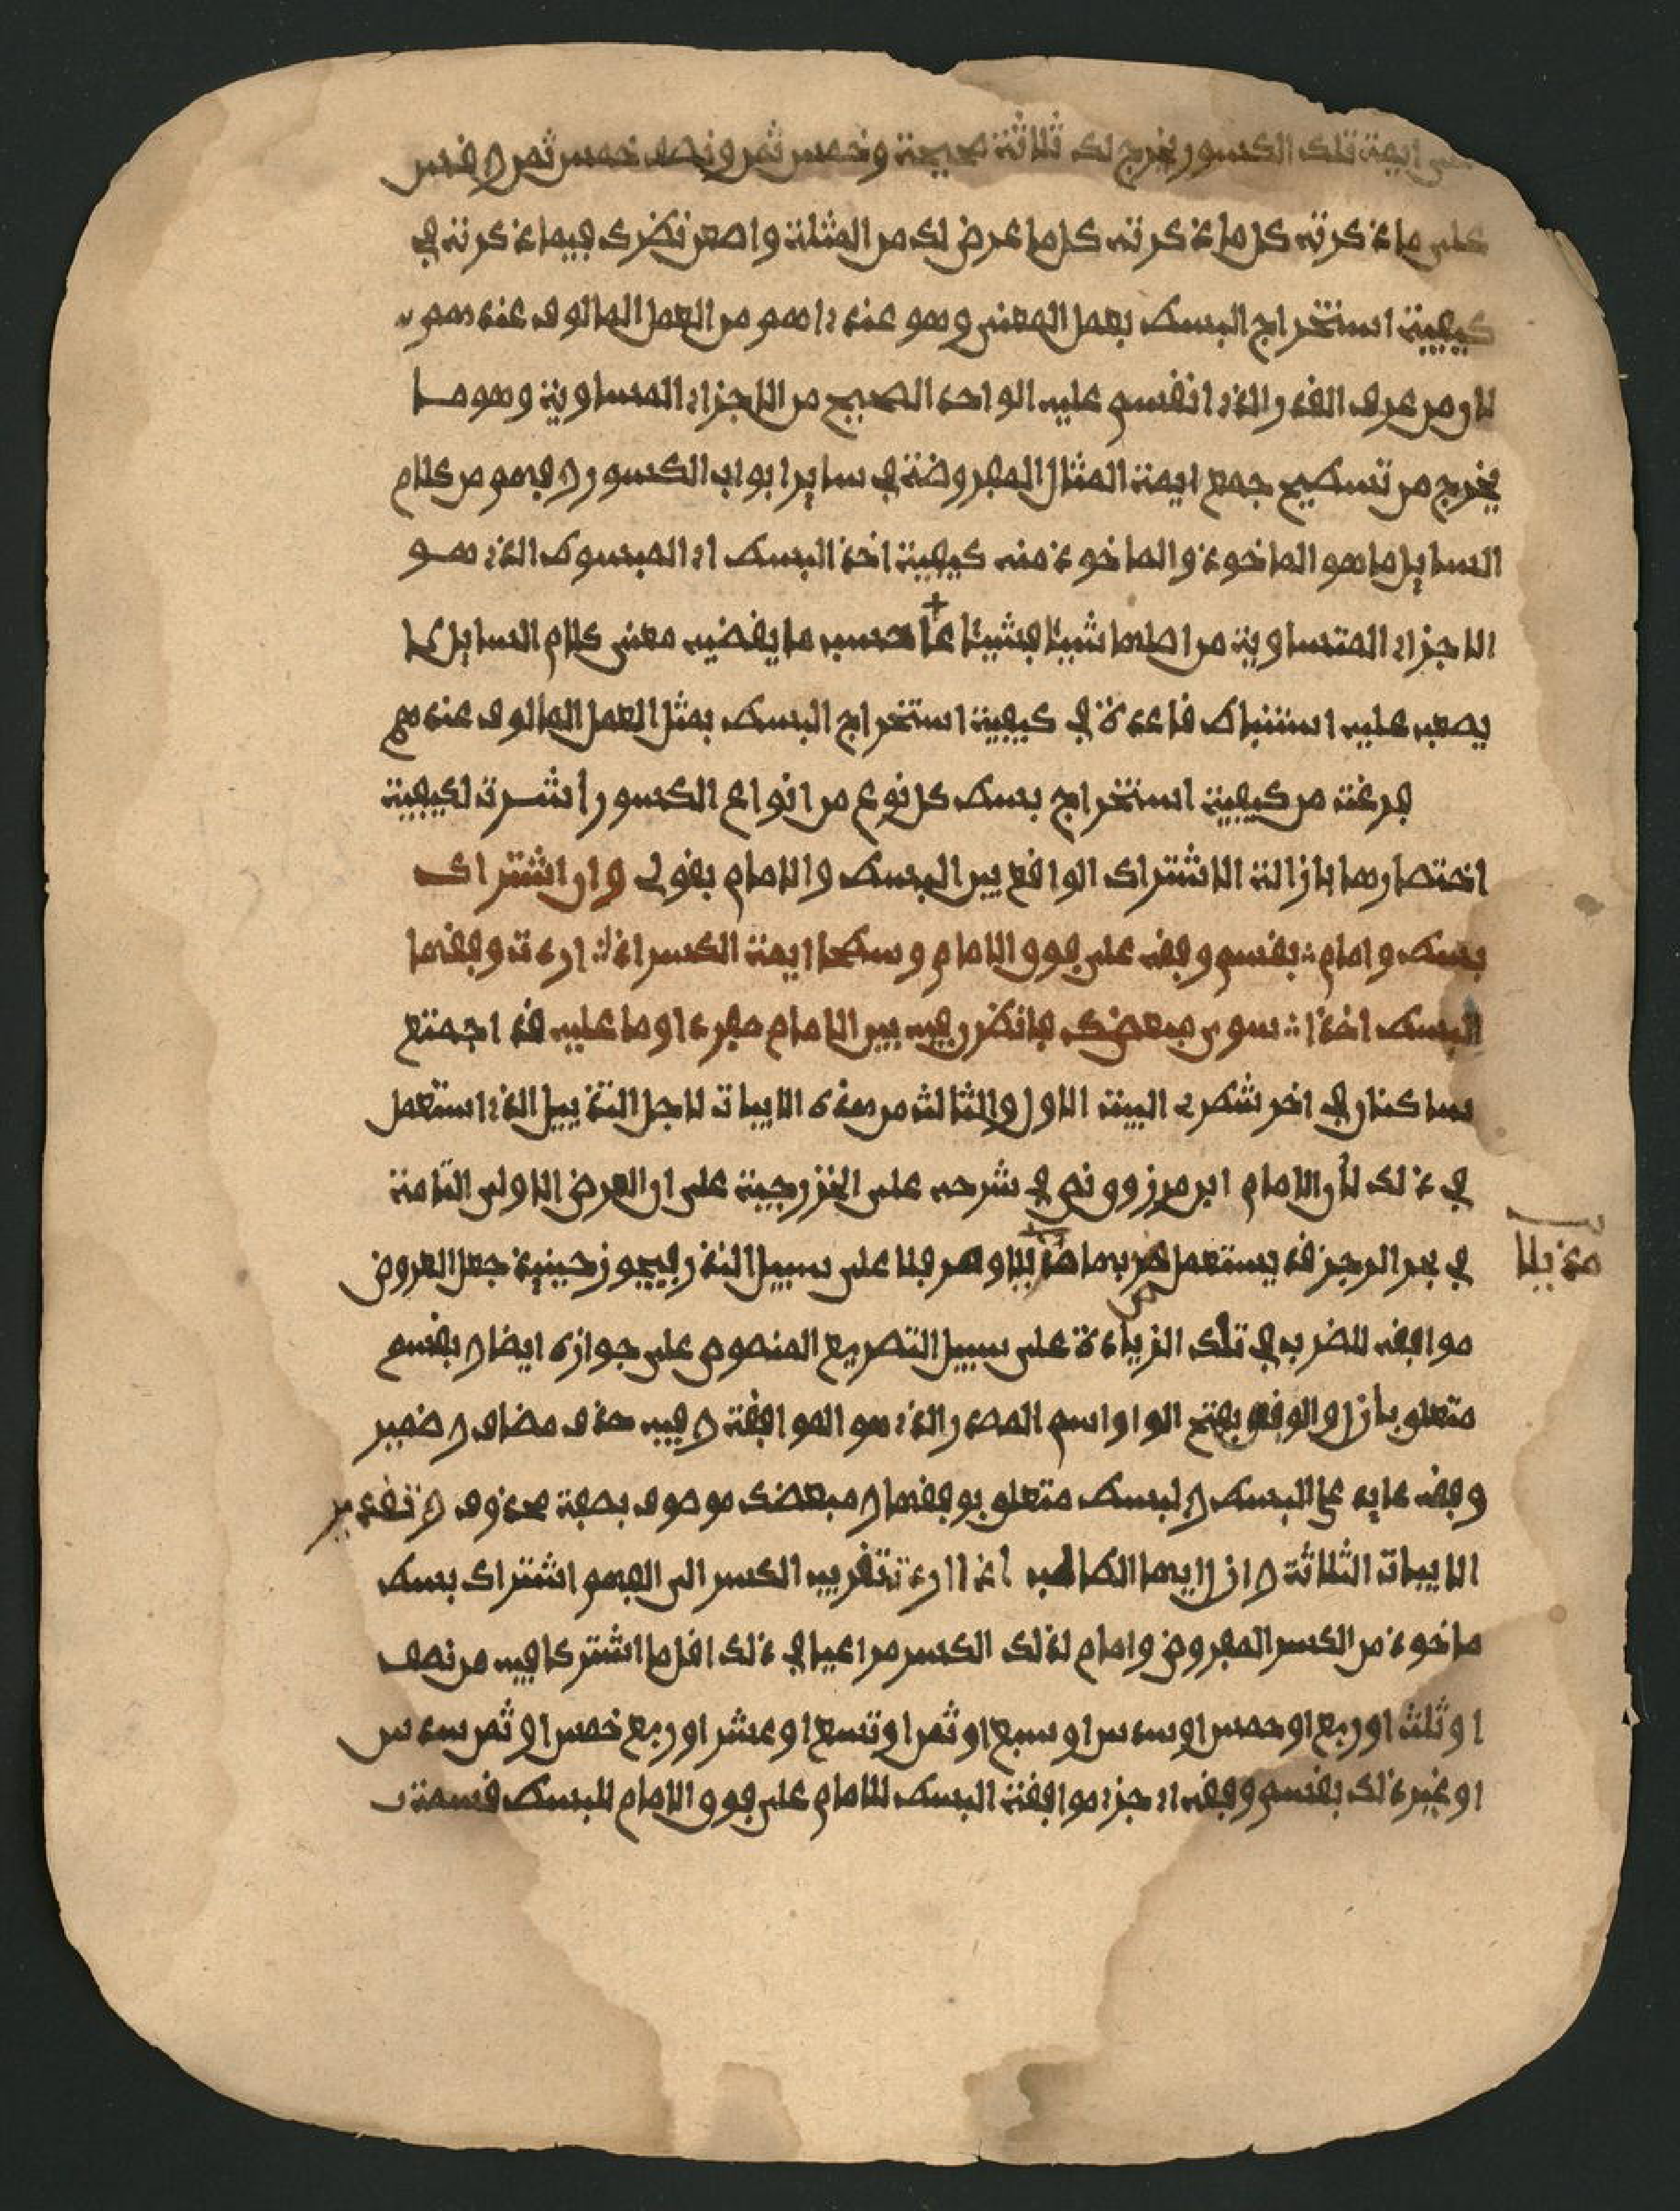 على ايمة تلك الكسور يخرج لك ثلاثة صحيحة وخمس ثمن ونصف خمس ثمن ه فس
على ما ذكرته كل ما ذكرته كل ما عرض لك من المثلة وامعن نظرك فيما ذكرته في
كيفية استخراج البسط بعمل المعنى وهو عندي اسهم من العمل المالوف عندهم
لان من عرف القدر الذي انقسم عليه الواحد الصحيح من الاجزاء المساوية وهو ما
يخرج من تسطيح جمع ايمة المثال المفروضة في ساير ابواب الكسور ه فهم من كلام
السايل ما هو الماخوذ والماخوذ منه كيفية اخذ البسط اي المبسوط الذي هو
الاجزاء المتساوية من اصلها شيئا فشيئا على حسب ما يقضيه معنى كلام السايل كما
يصعب عليه استنباط قاعدة في كيفية استخراج البسط بمثل العمل المالوف عندهم
فرغت من كيفية استخراج بسط كل نوع من انواع الكسور أشرت لكيفية
اختصارها بازالة الاشتراك الواقع بين البسط والامام بقولي وان اشتراك
بسط وامام بقسم وفقه على فوق الامام وسطحا ايمة الكسر اذا اردت وفقهما
البسط اخذا سوى مبعضك فانظر فيه بين الامام مفردا وما عليه قد اجمتع
ساكنان في اخر شطري البيت الاول والثالث من هذه الابيات لاجل التذييل الذي استعمل
في ذلك لأن الامام ابن مرزوق نص في شرحه على الخزرجية على ان العرض الاولى التامة
في بحر الرجز قد يستعمل ضربها مذيلا وهو قلنا على سبيل النذر فيجوز حينئذ جعل العروض
مذيلا
موافقه للضرب في تلك الزيادة على سبيل التصريع المنصوص على جوازه ايضا ه بقسم
متعلق بازل والوفق بفتح الواو اسم المصدر الذي هو الموافقة ه فيه حذف مضاف ه ضمير
وفقه عايد على البسط ه لبسط متعلق بوفقهما ه مبعضك موصوف بصفة محذوف ه تقدير
الابيات الثلاثة ه ازل ايها الطالب اذا اردت تقريب الكسر الى الفهم اشتراك بسط
ماخوذ من الكسر المفروض وامام لذلك الكسر مراعيا في ذلك اقل ما اشتركا فيه من نصف
او ثلث او ربع او خمس او سدس او سبع او ثمن او تسع او عشر او ربع خمس او ثمن سدس
او غير ذلك بقسم وفقه اي جزء موافقة البسط للامام على فوق الامام للبسط قسمة